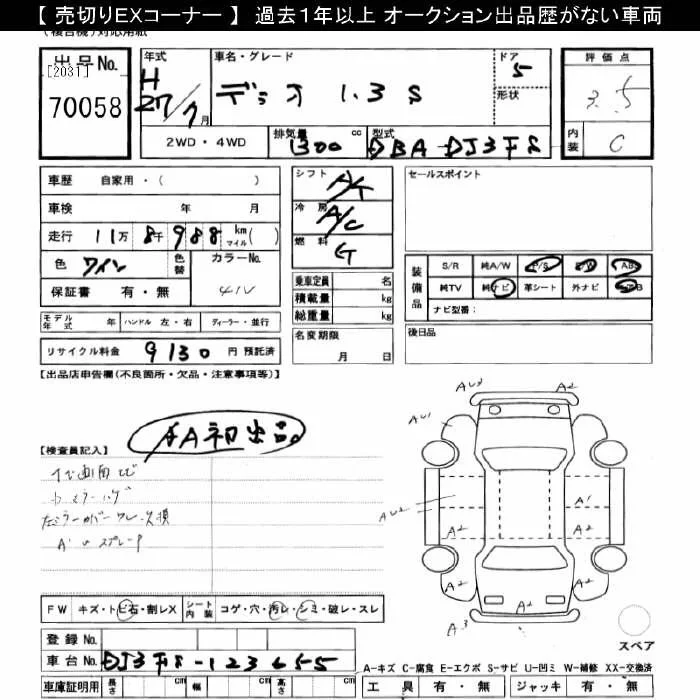 【 売切りEXコーナー 】 過去1年以上 オークション出品歴がない車両
出品No.
[2031]
70058
年式
H
27/7月
車名・グレード
デミオ 1.3 S
ドア
5
形状
評価点
3.5
内装
C
2WD・4WD
排気量 1300 cc
型式 DBA-DJ3FS
車歴 自家用・( )
車検 年 月
走行 11万 8千 988 km マイル( )
色 ワイン
色替
カラーNo. 41V
保証書 有・無
シフト A/T
冷房 A/C
燃料 G
乗車定員 名
積載量 kg
総重量 kg
セールスポイント
装備品
S/R 純A/W P/S P/W ABS
純TV 純ナビ 革シート 外ナビ
ナビ型番:
モデル年式 年 ハンドル 左・右 ディーラー・並行
リサイクル料金 9130 円 預託済
名変期限 月 日
後日品
【出品店申告欄(不良箇所・欠品・注意事項等)】
AA初出品
【検査員記入】
FW キズ・トビ石・割レX シート内装 コゲ・穴・汚レ・シミ・破レ・スレ
登録No.
車台No. DJ3FS-123655
車庫証明用 長さ cm 幅 cm 高さ cm
AU2 A2
AU1
A1
AU2 A2 A2
A2 A2
A3
スペア
A-キズ C-腐食 E-エクボ S-サビ U-凹ミ W-補修 XX-交換済
工具 有・無 ジャッキ 有・無